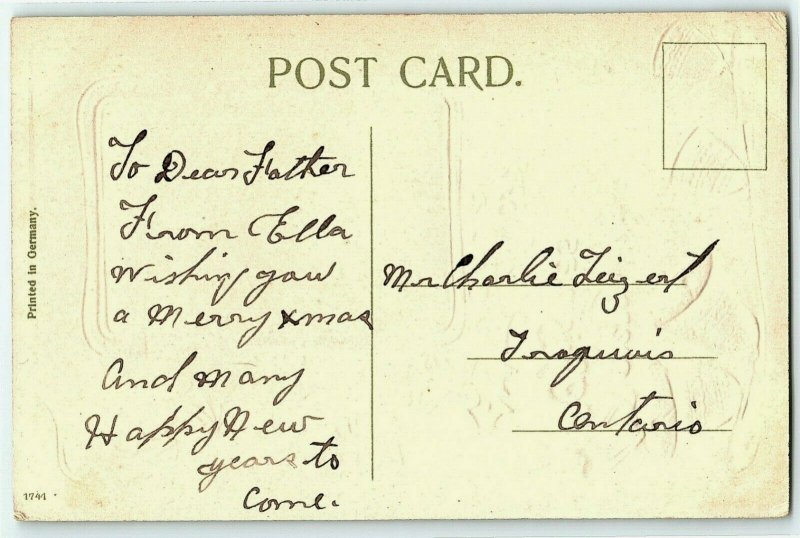 POST CARD.
To Dear Father
From Ella
Wishing you
a Merry Xmas
And Many
Happy New
years to
Come.
Mr Charlie
Iroquois
Ontario
Printed in Germany.
1741